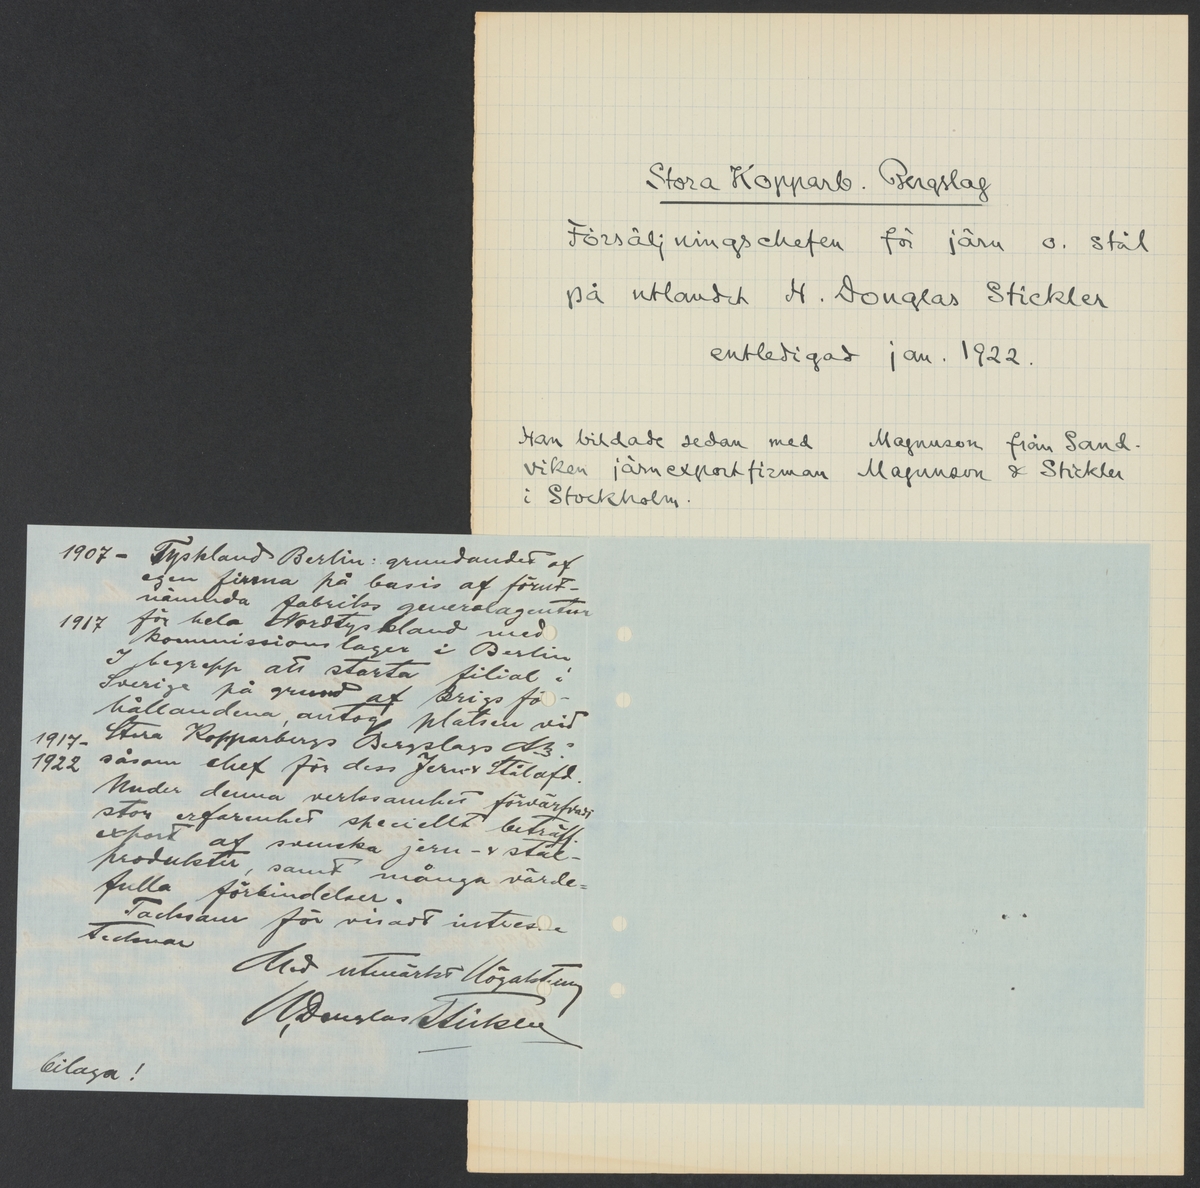 Stora Kopparb. Bergslag
Försäljningschefen för järn o. stål
på utlandet H. Douglas Stickler
entledigad jan. 1922.
Han bildade sedan med Magnuson från Sand-
viken järnexportfirman Magnuson & Stickler
i Stockholm.
1907- Tyskland Berlin: grundandet af
egen firma på basis af förut-
nämnda fabriks generalagentur
1917 för hela Nordtyskland med
kommissionslager i Berlin
I begrepp att starta filial i
Sverige på grund af krigsför-
hållandena, antog platsen vid
1917- Stora Kopparbergs Bergslags AB:
1922 såsom chef för dess Jern & Stålafd.
Under denna verksamhet förvärfvat
stor erfarenhet speciellt beträff.
export af svenska jern- & stål-
produkter, samt många värde-
fulla förbindelser.
Tacksam för visadt intresse
tecknar
Med utmärkt Högaktning
H. Douglas Stickler
bilaga!